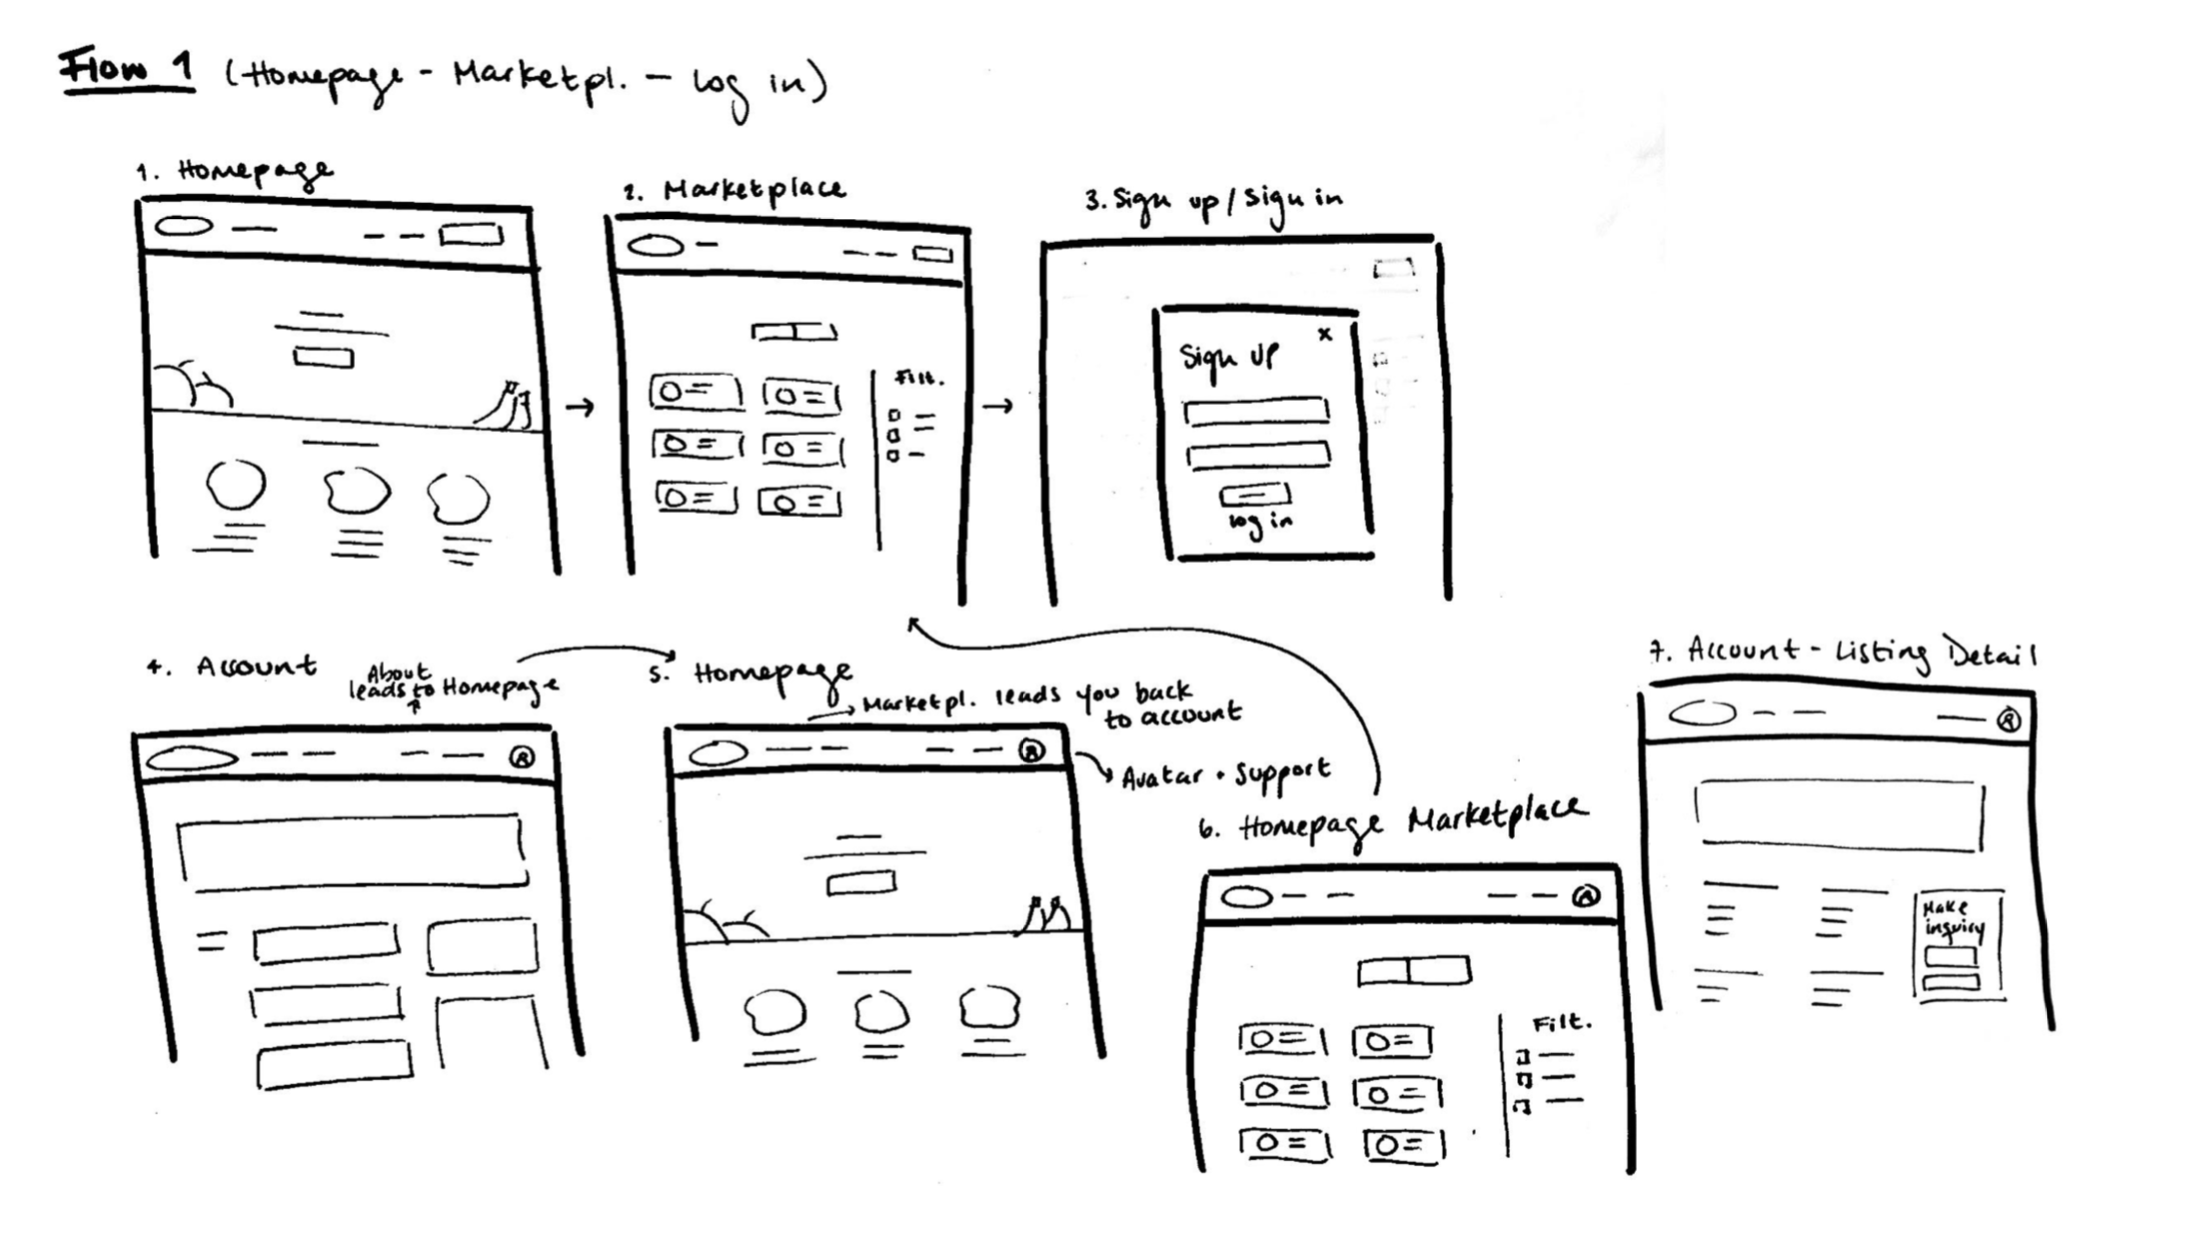 Flow 1 (Homepage - Marketpl. - log in)
1. Homepage
2. Marketplace
3. Sign up / Sign in
Filt.
x
Sign up
log in
4. Account
About
leads to Homepage
5. Homepage
Marketpl. leads you back
to account
Avatar + Support
6. Homepage Marketplace
Filt.
7. Account - Listing Detail
Make
inquiry